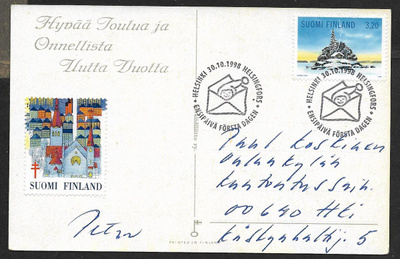 Hyvää Joulua ja
Onnellista
Uutta Vuotta
SUOMI FINLAND
3,20
HELSINKI 30.10.1998 HELSINGFORS
ENSIPÄIVÄ FÖRSTA DAGEN
HELSINKI 30.10.1998 HELSINGFORS
ENSIPÄIVÄ FÖRSTA DAGEN
SUOMI FINLAND
Koskinen
Oulunkylän
00640 Hki
5
PRINTED IN FINLAND